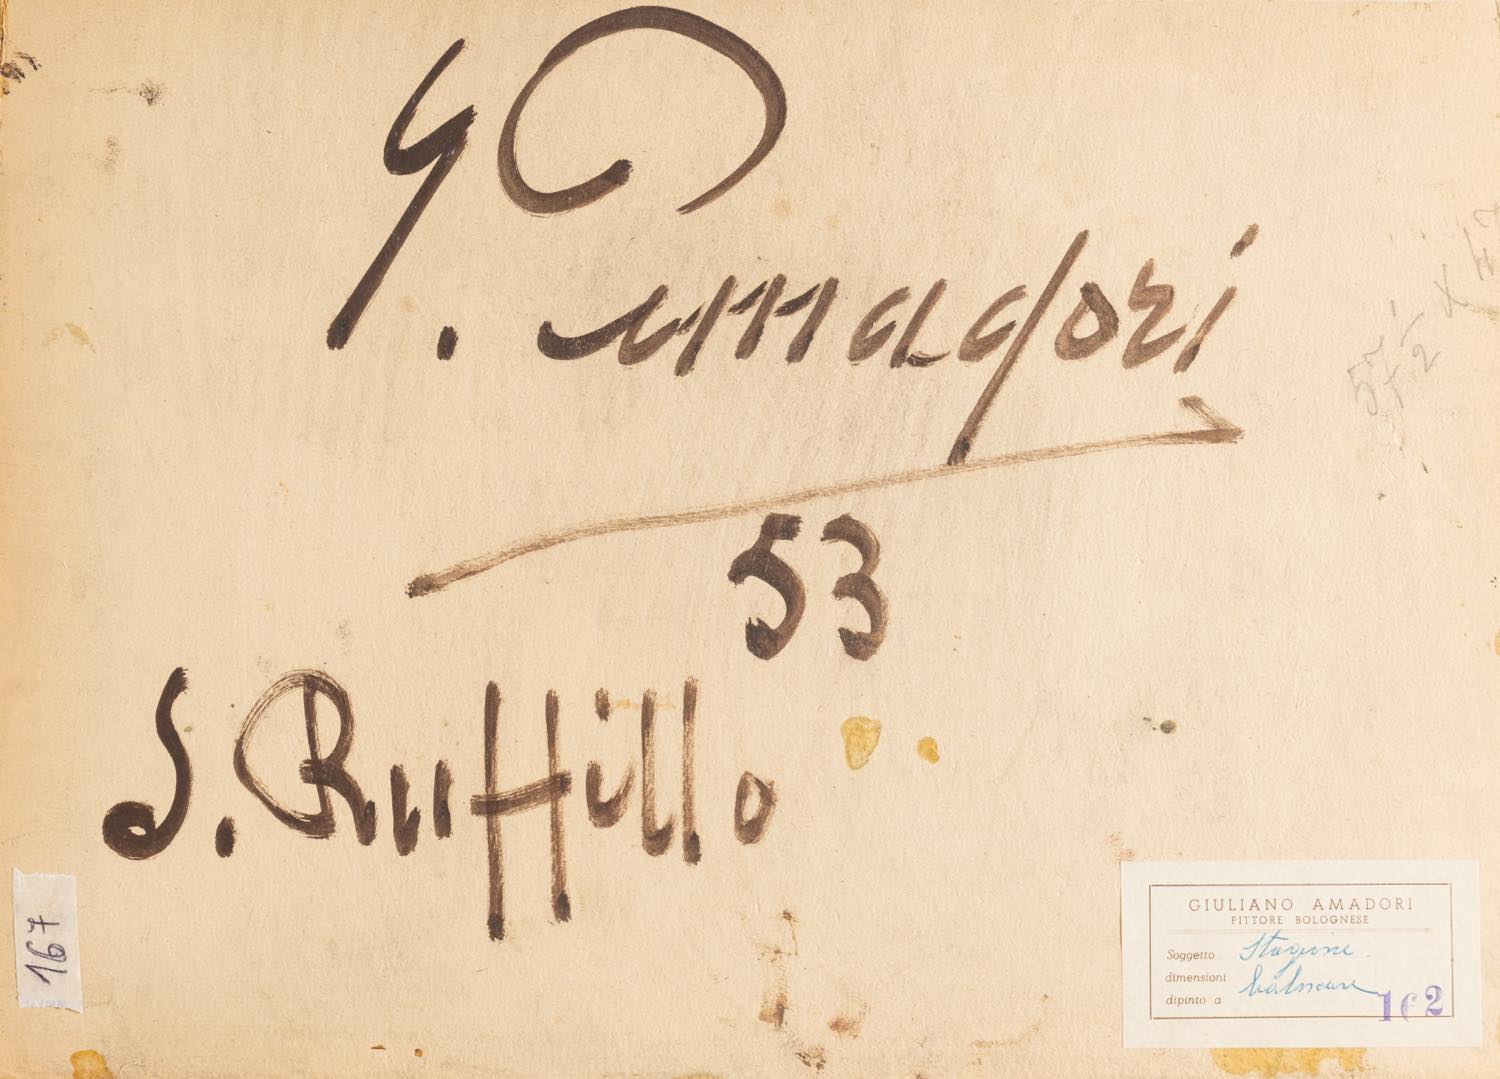 G. Amadori
53
S. Ruffillo
167
GIULIANO AMADORI
PITTORE BOLOGNESE
Soggetto Stagione
dimensioni balneare
dipinto a
162